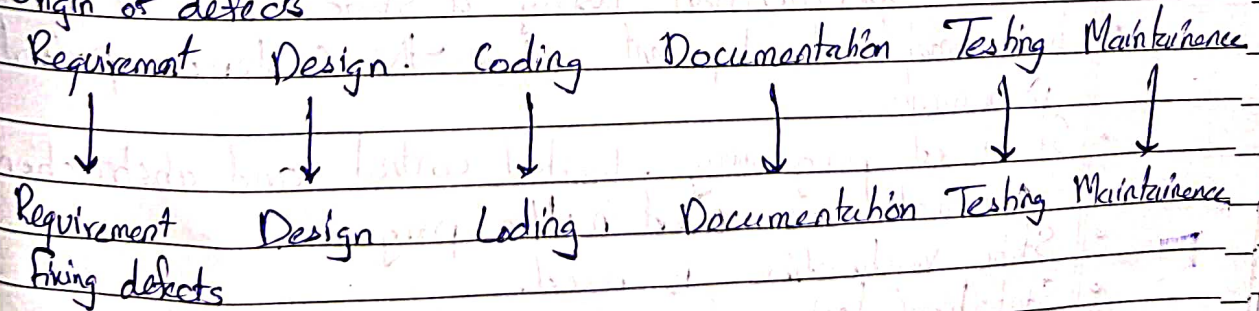 Origin of defects
Requirement Design Coding Documentation Testing Maintainence
Requirement Design Coding Documentation Testing Maintainence
fixing defects